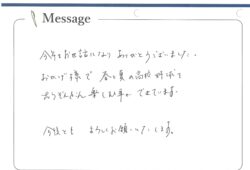 Message
今年もお世話になり ありがとうございました.
おかげ様で 春と夏の高校野球を
楽しむ事ができています.
今後とも よろしくお願いいたします。